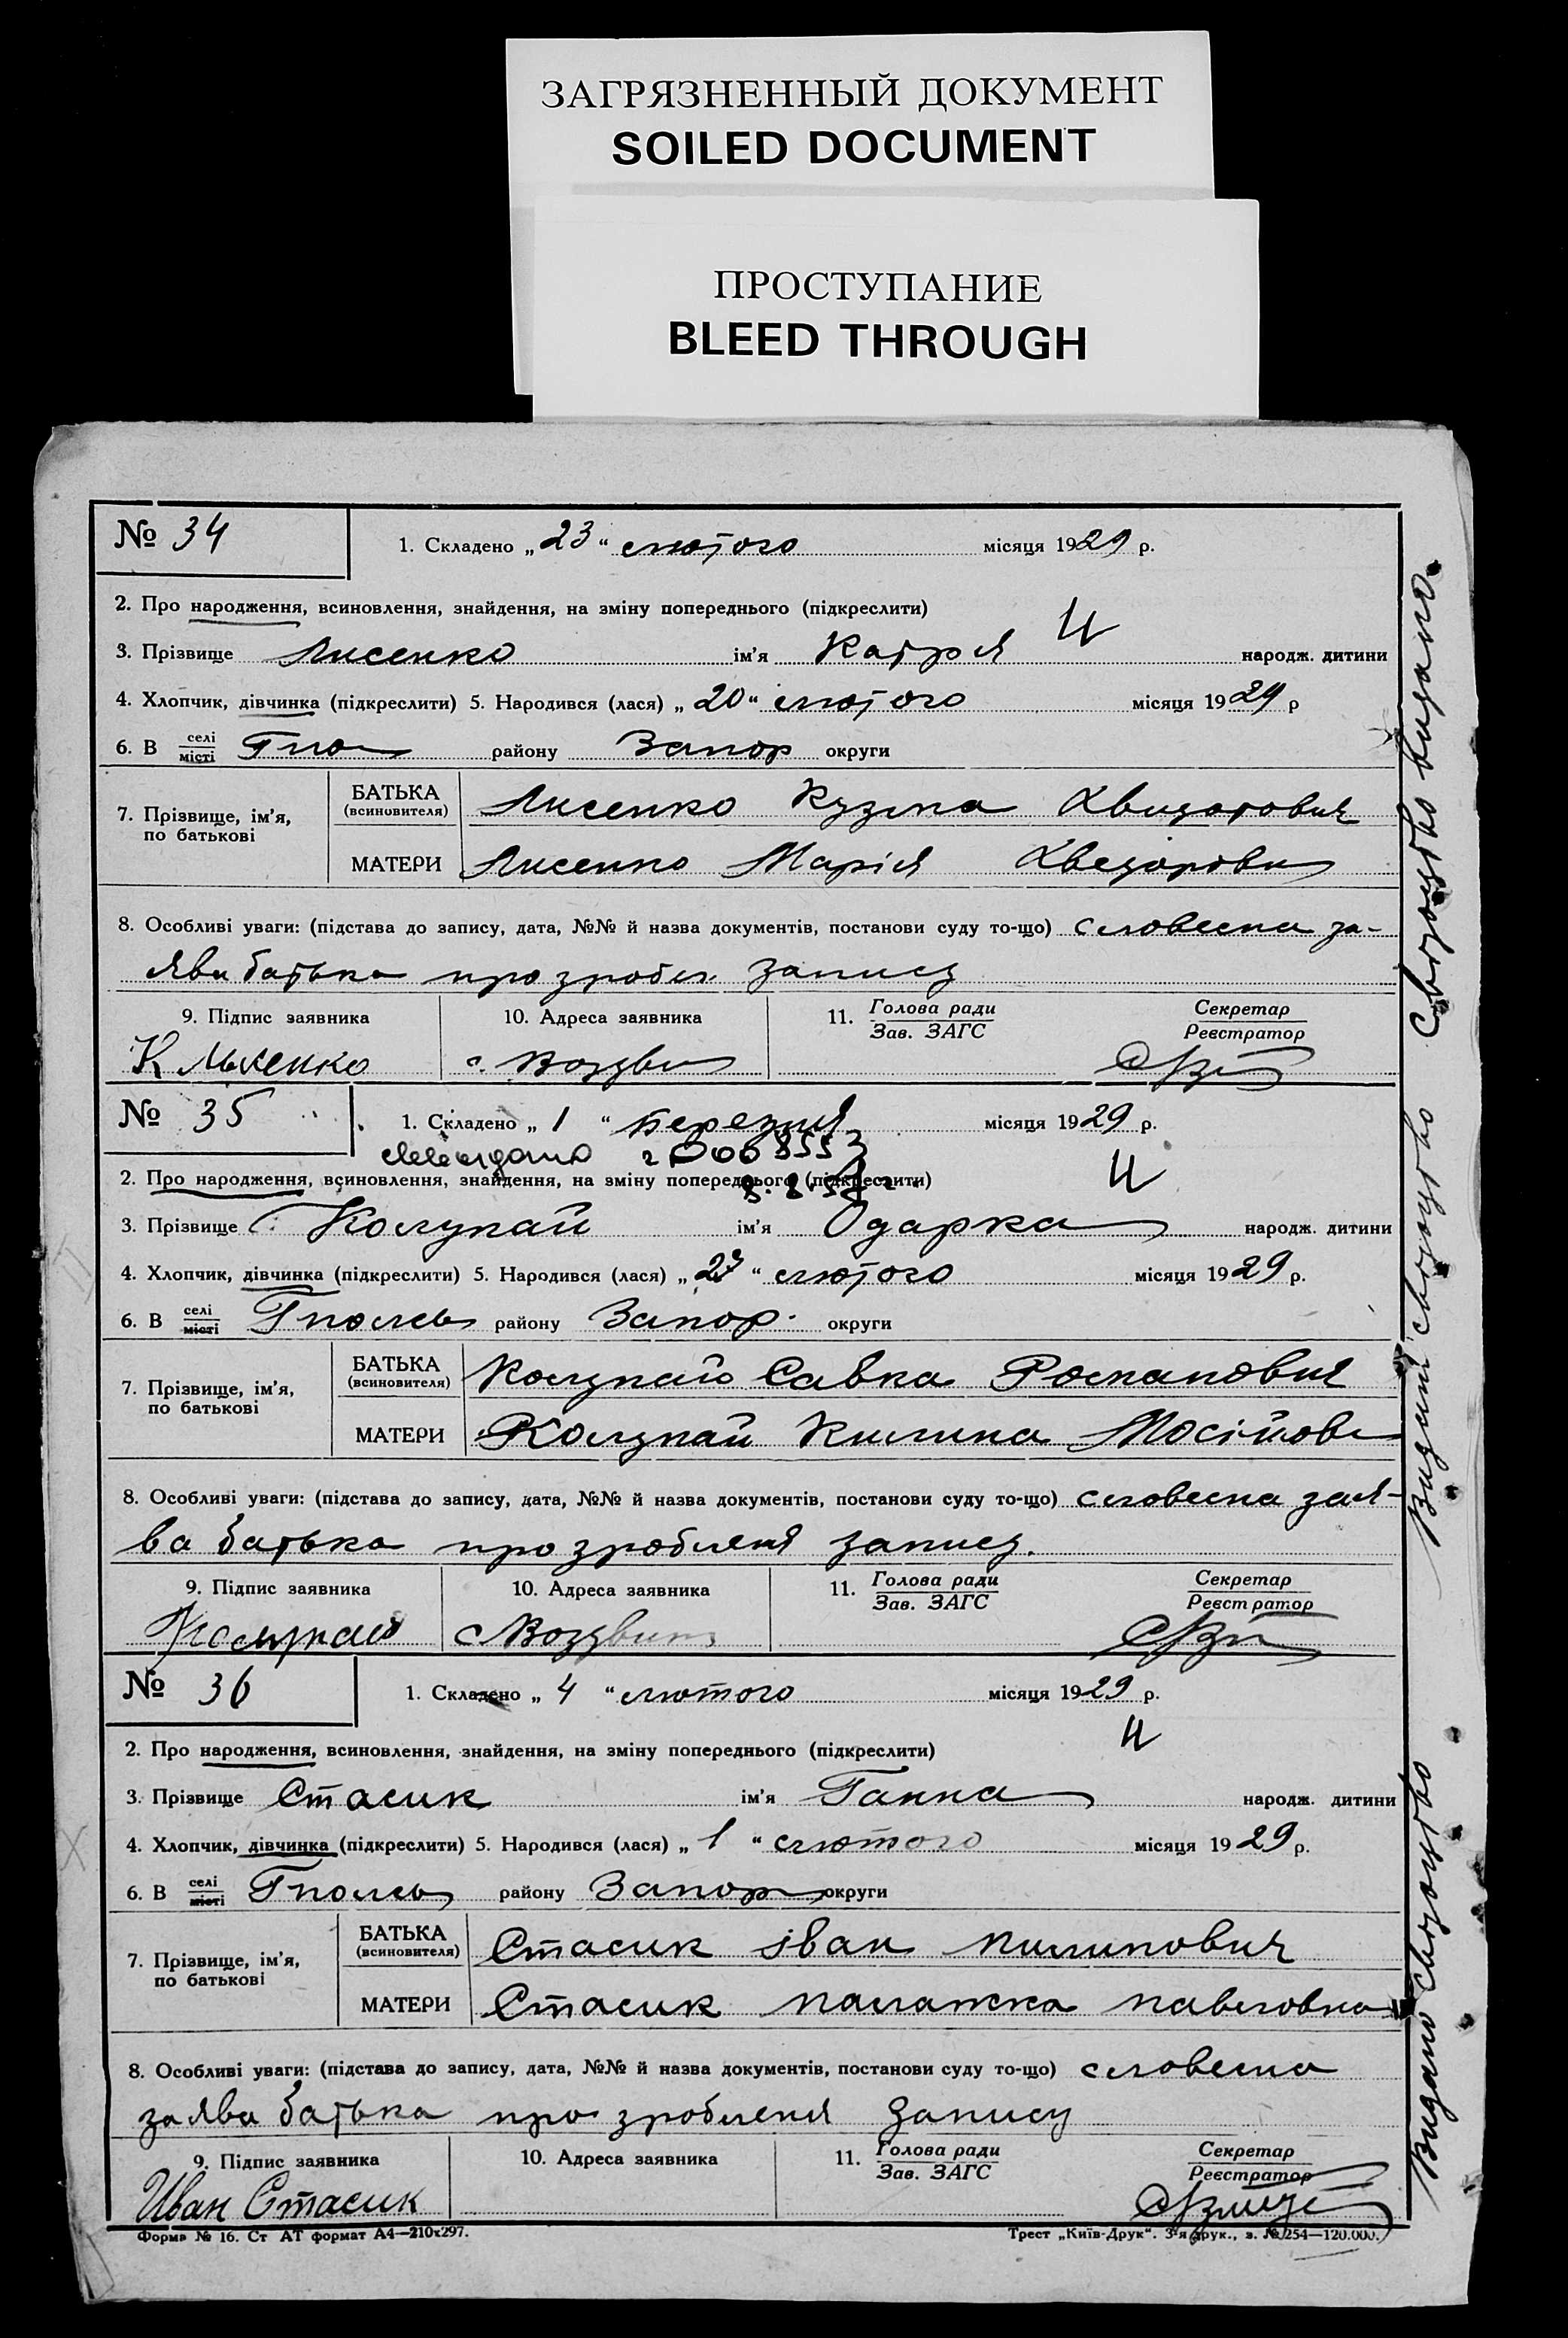 ЗАГРЯЗНЕННЫЙ ДОКУМЕНТ
SOILED DOCUMENT
ПРОСТУПАНИЕ
BLEED THROUGH
№ 34
1. Складено „23“ лютого місяця 1929 р.
2. Про народження, всиновлення, знайдення, на зміну попереднього (підкреслити)
3. Прізвище Лисенко ім'я Катря народж. дитини
4. Хлопчик, дівчинка (підкреслити) 5. Народився (лася) „20“ лютого місяця 1929 р
6. В селі місті району Запор округи
7. Прізвище, ім'я, по батькові
БАТЬКА (всиновителя) Лисенко Кузма
МАТЕРИ Лисенко Марія
8. Особливі уваги: (підстава до запису, дата, №№ й назва документів, постанови суду то-що) словесна за-
ява батька про зробл. запису
9. Підпис заявника 10. Адреса заявника 11. Голова ради Зав. ЗАГС Секретар Реєстратор
К Лысенко с. Воздви
№ 35
1. Складено „1“ березня місяця 1929 р.
2. Про народження, всиновлення, знайдення, на зміну попереднього (підкреслити)
3. Прізвище Колупай ім'я Одарка народж. дитини
4. Хлопчик, дівчинка (підкреслити) 5. Народився (лася) „ “ лютого місяця 1929 р.
6. В селі місті Гполев району Запор. округи
7. Прізвище, ім'я, по батькові
БАТЬКА (всиновителя) Колупай Савка Романович
МАТЕРИ Колупай Килина Мосійов
8. Особливі уваги: (підстава до запису, дата, №№ й назва документів, постанови суду то-що) словесна зая-
ва батька про зробленя запису.
9. Підпис заявника 10. Адреса заявника 11. Голова ради Зав. ЗАГС Секретар Реєстратор
Колупай с Воздвиж
№ 36
1. Складено „4“ лютого місяця 1929 р.
2. Про народження, всиновлення, знайдення, на зміну попереднього (підкреслити)
3. Прізвище Стасик ім'я Ганна народж. дитини
4. Хлопчик, дівчинка (підкреслити) 5. Народився (лася) „1“ лютого місяця 1929 р.
6. В селі місті Гполев району Запор округи
7. Прізвище, ім'я, по батькові
БАТЬКА (всиновителя) Стасик іван пилипович
МАТЕРИ Стасик палажка павловна
8. Особливі уваги: (підстава до запису, дата, №№ й назва документів, постанови суду то-що) словесна
заява батька про зробленя запису
9. Підпис заявника 10. Адреса заявника 11. Голова ради Зав. ЗАГС Секретар Реєстратор
Иван Стасик
Форма № 16. Ст АТ формат А4—210х297.
Трест „Київ-Друк“. 3-я друк., з. № 254—120.000.
Свідоцтво видано.
Видані свідоцтво
Видано свідоцтво